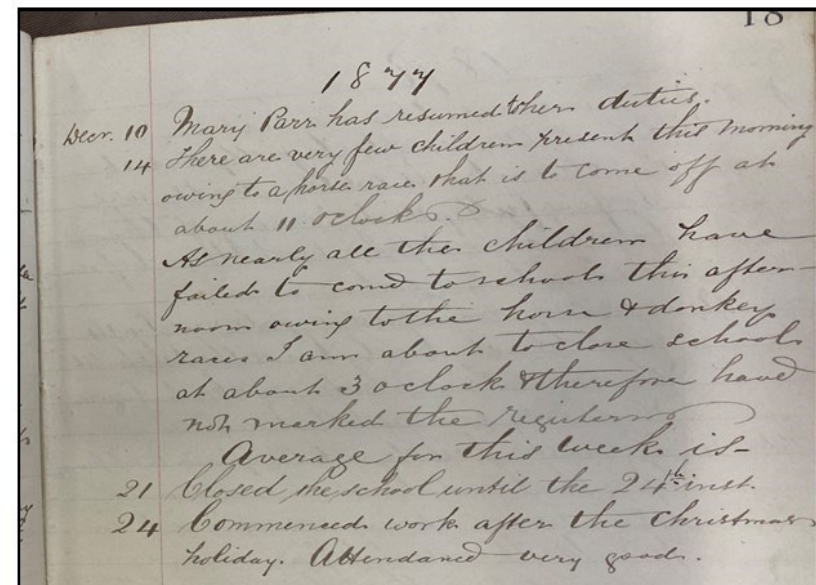 18
1877
Decr. 10 Mary Parr has resumed her duties.
14 There are very few children present this morning
owing to a horse race that is to come off at
about 11 oclock.
As nearly all the children have
failed to come to school this after-
noon owing to the horse & donkey
races I am about to close school
at about 3 oclock & therefore have
not marked the registers
Average for this week is-
21 Closed the school until the 24th inst.
24 Commenced work after the Christmas
holiday. Attendance very good.